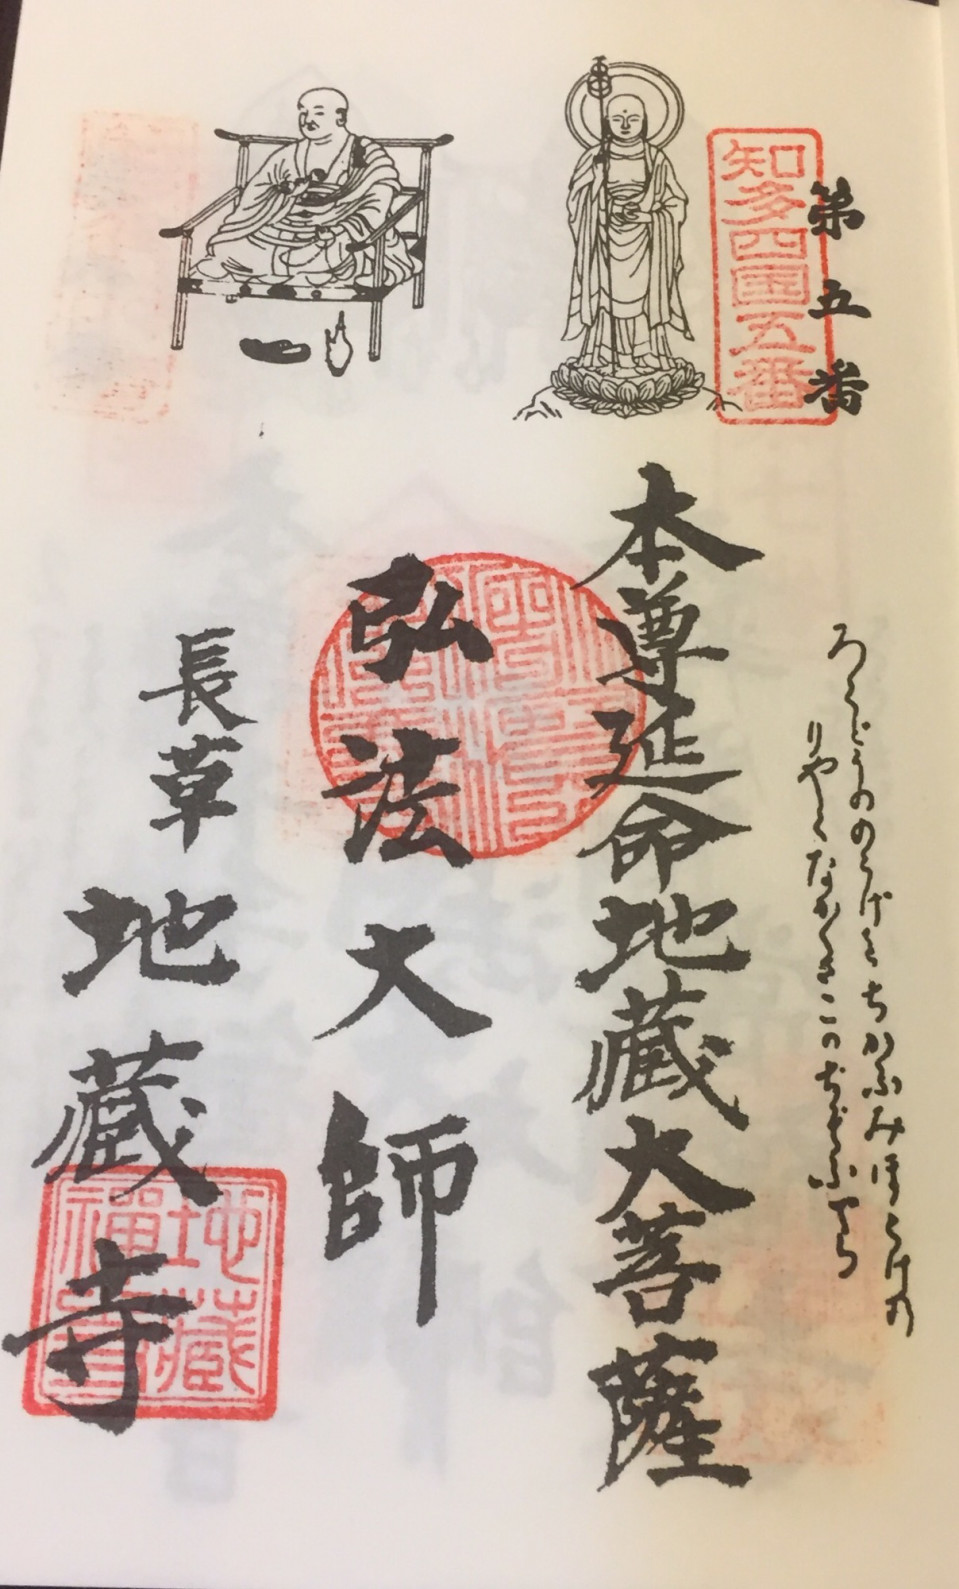 第五番
知多四国五番
ろくどうののうげとちかふみほとけの
りやくなかくさこのぢざふでら
本尊延命地蔵大菩薩
弘法大師
長草
地蔵寺
地蔵
禅寺